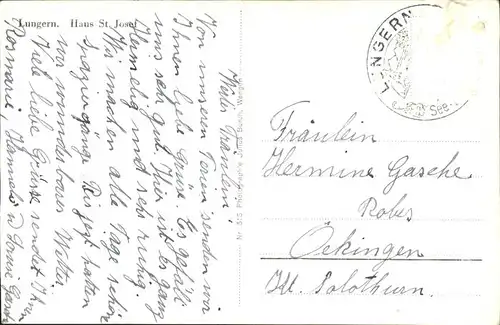 Lungern. Haus St. Josef
Wertes Fräulein!
Von unseren Ferien senden wir
Ihnen liebe Grüsse. Es gefällt
uns sehr gut. Hier ist es ganz
heimelig und sehr ruhig.
Wir machen alle Tage schöne
Spaziergänge. Bis jetzt hatten
wir wunderbares Wetter.
Viele liebe Grüsse sendet Ihnen
Rosmarie,
LUNGERN
See
Fräulein
Hermine Gasche
Robes
Oekingen
Kt. Solothurn.